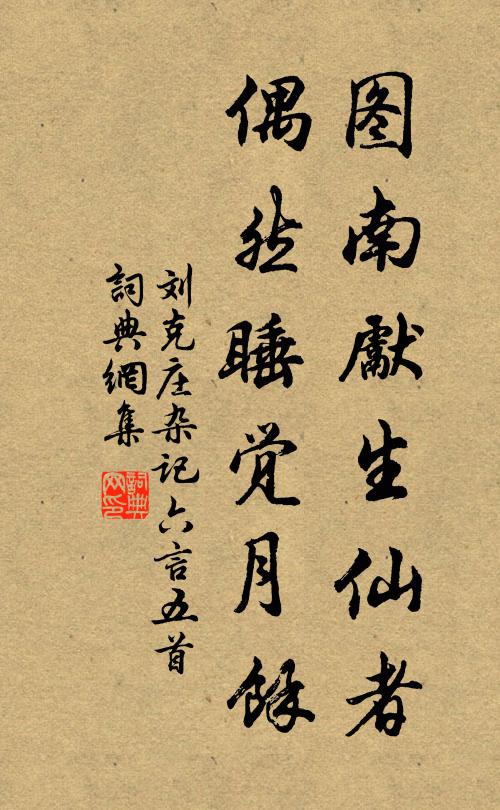 图南献生仙者
偶然睡觉月馀
刘克庄杂记六言五首
詞典網集
詞典网印